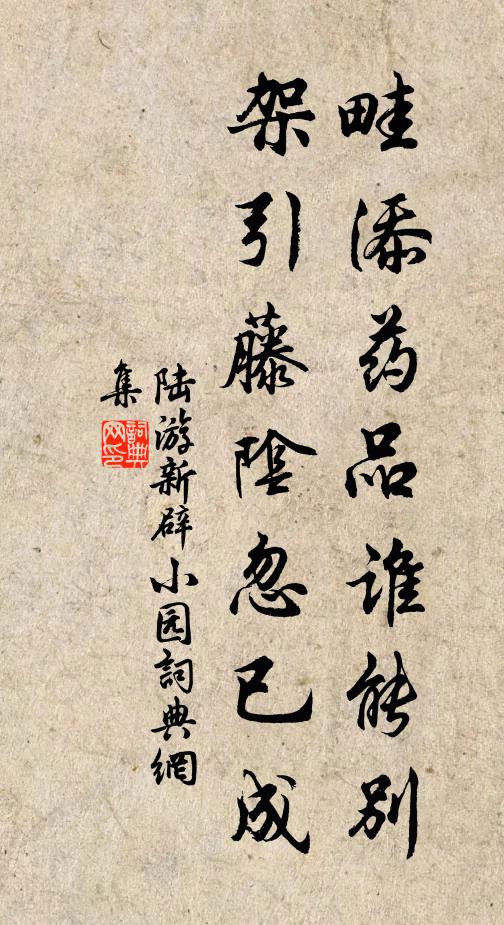 畦添药品谁能别
架引藤陰忽已成
陆游新辟小园詞典網
集
詞典
网印